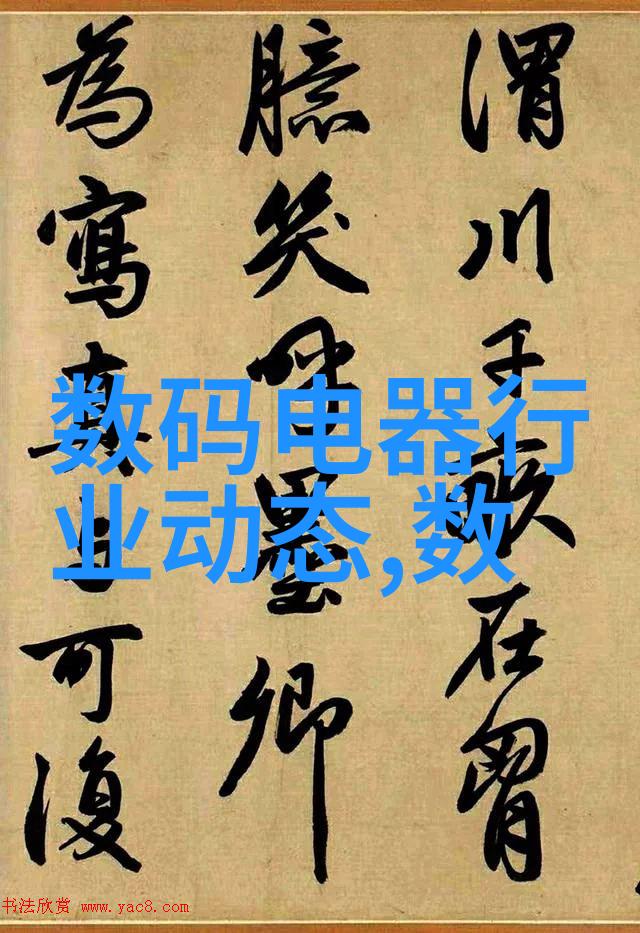 渭川千畝在胷
臆笑呼墨卿
為寫真与可復
数码电器行
业动态,数
书法欣赏 www.yac8.com